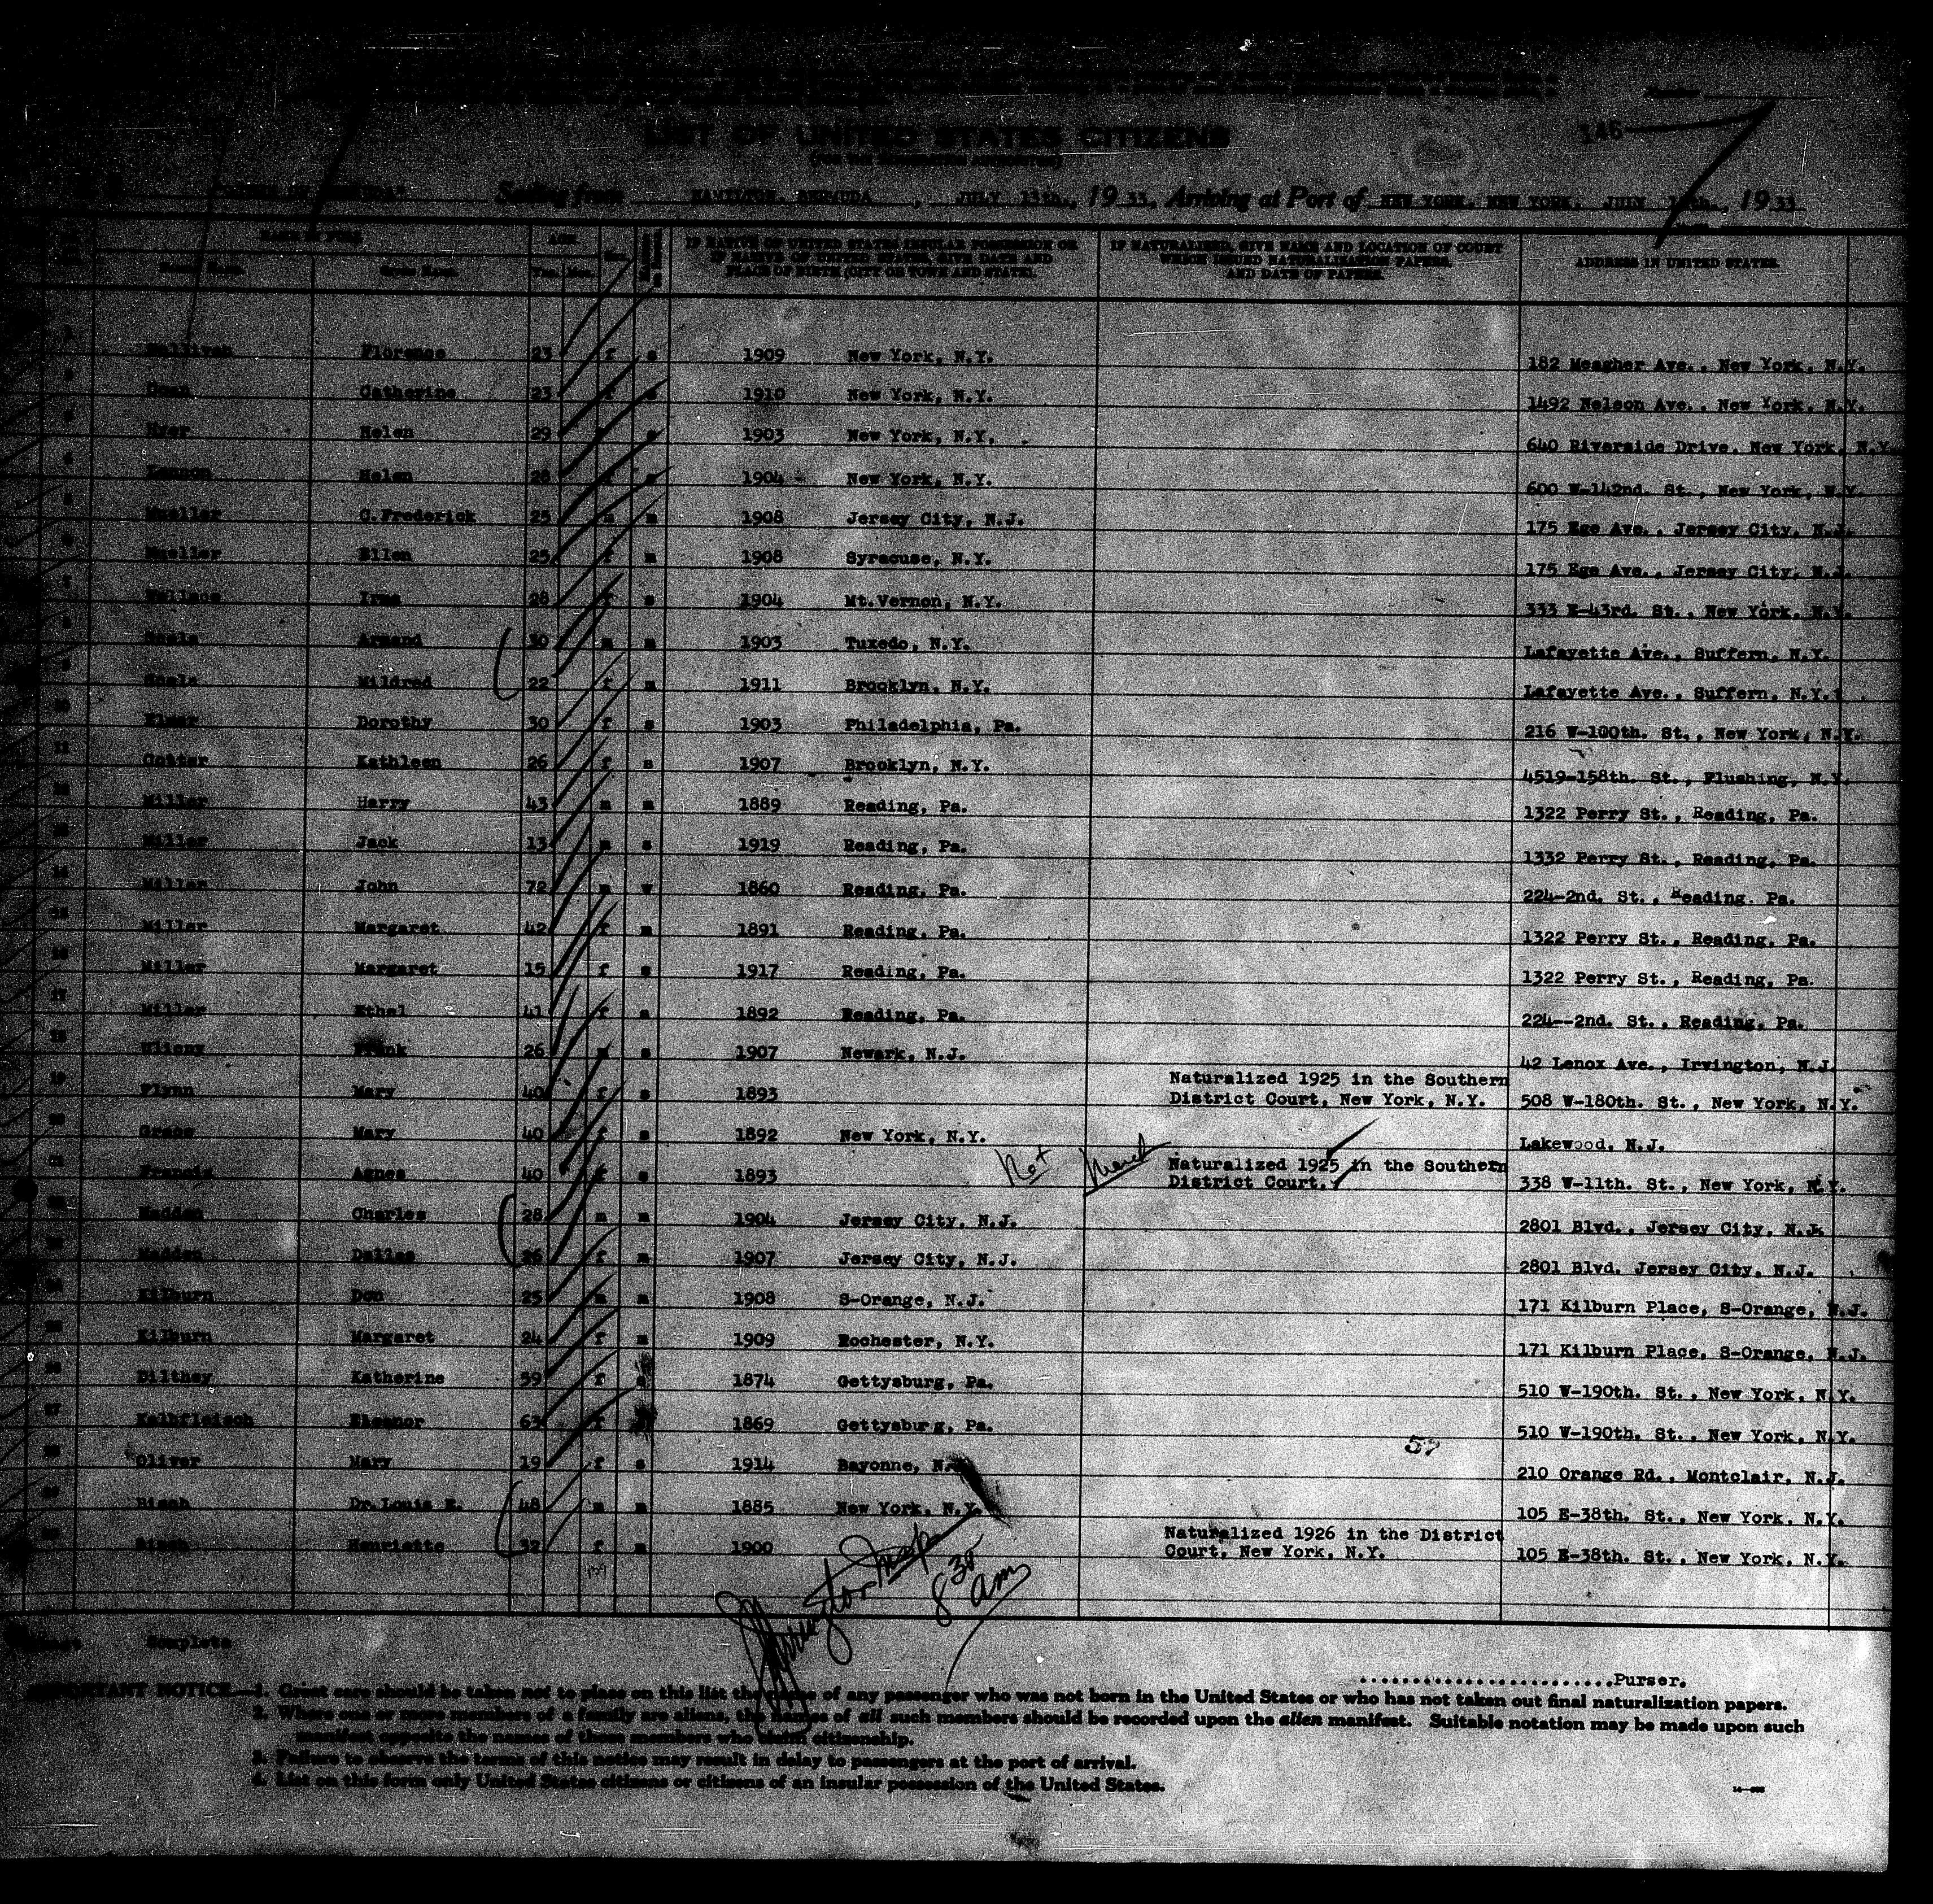 LIST OF UNITED STATES CITIZENS
(FOR THE IMMIGRATION AUTHORITIES)
146
Sailing from HAMILTON, BERMUDA, JULY 13th., 1933, Arriving at Port of NEW YORK, NEW YORK, JULY 1933
NAME IN FULL AGE
FAMILY NAME. GIVEN NAME. Yrs. Mos. IF NATIVE OF UNITED STATES INSULAR POSSESSION OR IF NATIVE OF UNITED STATES, GIVE DATE AND PLACE OF BIRTH (CITY OR TOWN AND STATE). IF NATURALIZED, GIVE NAME AND LOCATION OF COURT WHICH ISSUED NATURALIZATION PAPERS, AND DATE OF PAPERS. ADDRESS IN UNITED STATES.
1 Florence 23 f s 1909 New York, N.Y. 182 Meagher Ave., New York, N.Y.
2 Dunn Catherine 23 f s 1910 New York, N.Y. 1492 Nelson Ave., New York, N.Y.
3 Hyer Helen 29 s 1903 New York, N.Y. 640 Riverside Drive, New York, N.Y.
4 Helen 28 s 1904 New York, N.Y. 600 W-142nd. St., New York, N.Y.
5 Mueller C.Frederick 25 m m 1908 Jersey City, N.J. 175 Ege Ave., Jersey City, N.J.
6 Mueller Ellen 25 f m 1908 Syracuse, N.Y. 175 Ege Ave., Jersey City, N.J.
7 Wallace Irma 28 f s 1904 Mt.Vernon, N.Y. 333 E-43rd. St., New York, N.Y.
8 Armand 30 m m 1903 Tuxedo, N.Y. Lafayette Ave., Suffern, N.Y.
9 Mildred 22 f m 1911 Brooklyn, N.Y. Lafayette Ave., Suffern, N.Y.
10 Dorothy 30 f s 1903 Philadelphia, Pa. 216 W-100th. St., New York, N.Y.
11 Cotter Kathleen 26 f s 1907 Brooklyn, N.Y. 4519-158th. St., Flushing, N.Y.
12 Miller Harry 43 m m 1889 Reading, Pa. 1322 Perry St., Reading, Pa.
13 Miller Jack 13 m s 1919 Reading, Pa. 1332 Perry St., Reading, Pa.
14 Miller John 72 m w 1860 Reading, Pa. 224-2nd. St., Reading. Pa.
15 Miller Margaret 42 f m 1891 Reading, Pa. 1322 Perry St., Reading, Pa.
16 Miller Margaret 15 f s 1917 Reading, Pa. 1322 Perry St., Reading, Pa.
17 Miller Ethel 41 f s 1892 Reading, Pa. 224--2nd. St., Reading, Pa.
18 Frank 26 m s 1907 Newark, N.J. 42 Lenox Ave., Irvington, N.J.
19 Flynn Mary 40 f s 1893 Naturalized 1925 in the Southern District Court, New York, N.Y. 508 W-180th. St., New York, N.Y.
20 Grace Mary 40 f s 1892 New York, N.Y. Lakewood, N.J.
21 Francis Agnes 40 f s 1893 Not Naturalized 1925 in the Southern District Court. 338 W-11th. St., New York, N.Y.
22 Madden Charles 28 m m 1904 Jersey City, N.J. 2801 Blvd., Jersey City, N.J.
23 Madden Dallas 26 f m 1907 Jersey City, N.J. 2801 Blvd. Jersey City, N.J.
24 Kilburn Don 25 m m 1908 S-Orange, N.J. 171 Kilburn Place, S-Orange, N.J.
25 Kilburn Margaret 24 f m 1909 Rochester, N.Y. 171 Kilburn Place, S-Orange, N.J.
26 Dilthey Katherine 59 f 1874 Gettysburg, Pa. 510 W-190th. St., New York, N.Y.
27 Kalbfleisch Eleanor 63 f 1869 Gettysburg, Pa. 510 W-190th. St., New York, N.Y.
28 Oliver Mary 19 f s 1914 Bayonne, N. 210 Orange Rd., Montclair, N.J.
29 Bisch Dr.Louis E. 48 m m 1885 New York, N.Y. 105 E-38th. St., New York, N.Y.
30 Bisch Henriette 32 f m 1900 Naturalized 1926 in the District Court, New York, N.Y. 105 E-38th. St., New York, N.Y.
8 30 am
Complete
Purser.
IMPORTANT NOTICE.—1. Great care should be taken not to place on this list the names of any passenger who was not born in the United States or who has not taken out final naturalization papers.
2. Where one or more members of a family are aliens, the names of all such members should be recorded upon the alien manifest. Suitable notation may be made upon such
manifest opposite the names of those members who claim citizenship.
3. Failure to observe the terms of this notice may result in delay to passengers at the port of arrival.
4. List on this form only United States citizens or citizens of an insular possession of the United States.